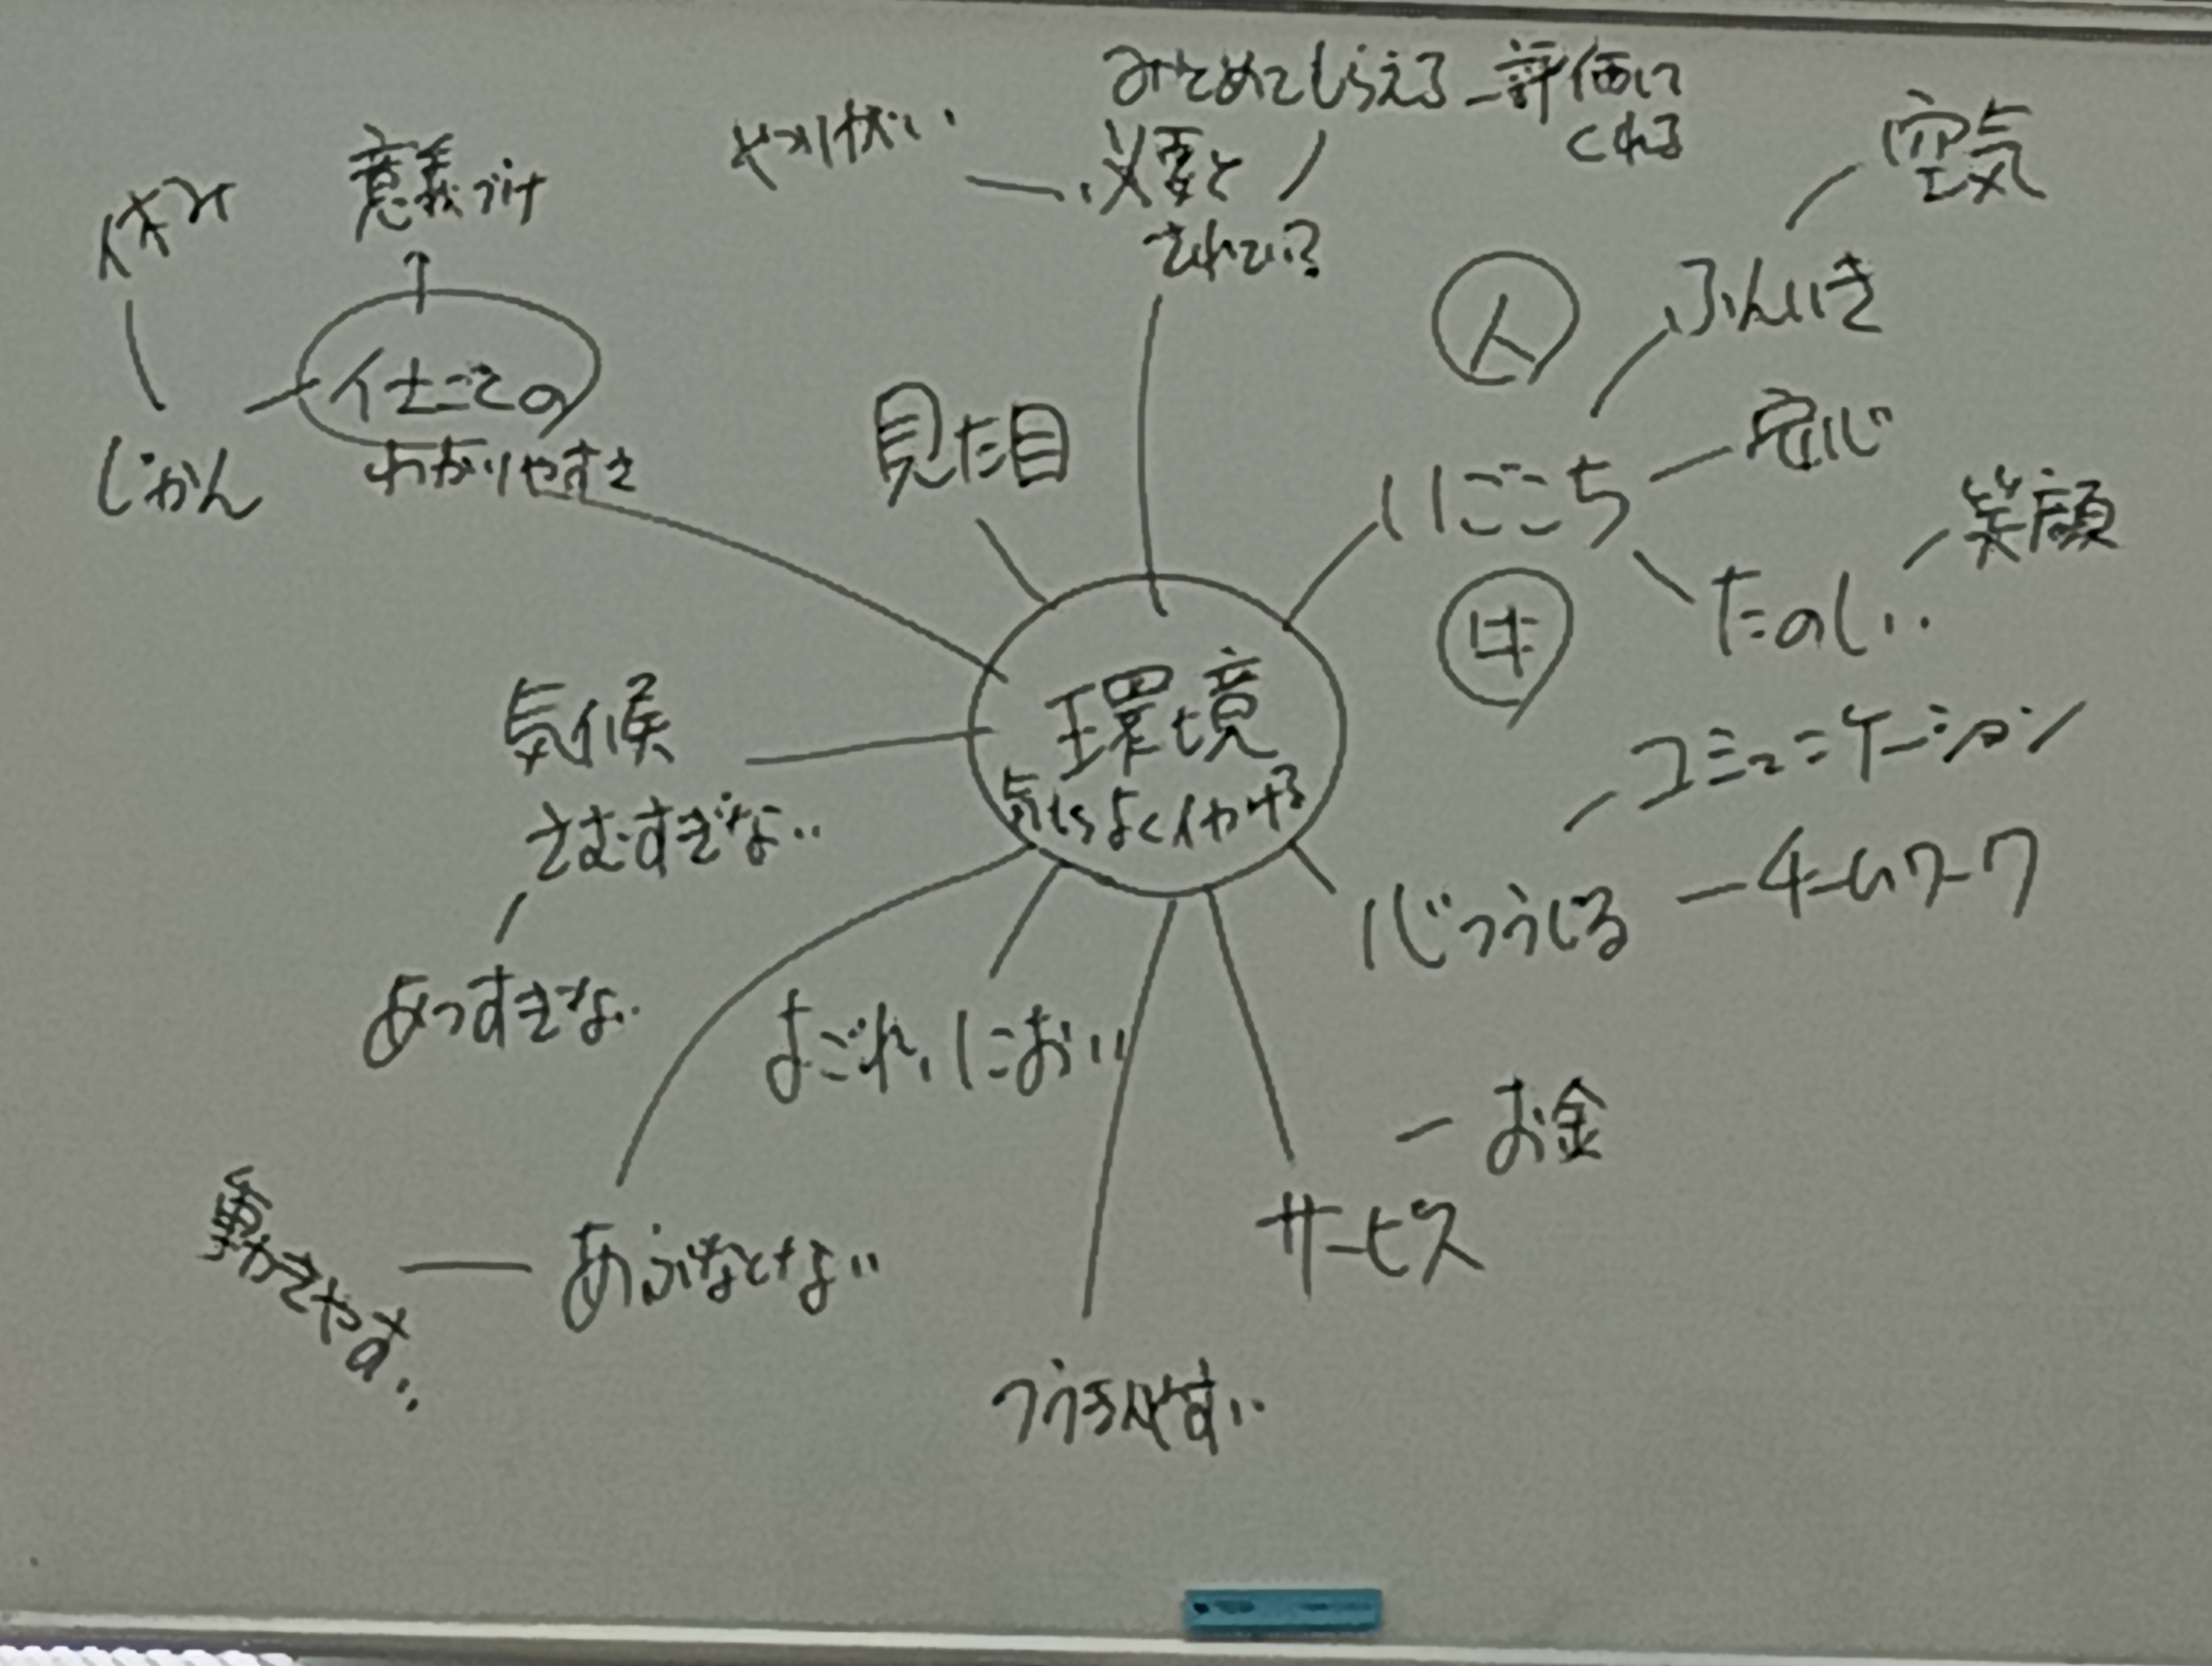 みとめてもらえる
評価して
くれる
やりがい
必要と
されてい?
空気
休み
意義づけ
人
ふんいき
仕ごとの
わかりやすさ
じかん
見た目
いごこち
安心
笑顔
たのしい
環境
気もちよく
気候
さむすぎない
あつすぎない
コミュニケーション
心つうじる
チームワーク
よごれ、におい
お金
サービス
あぶなくない
動きやすい